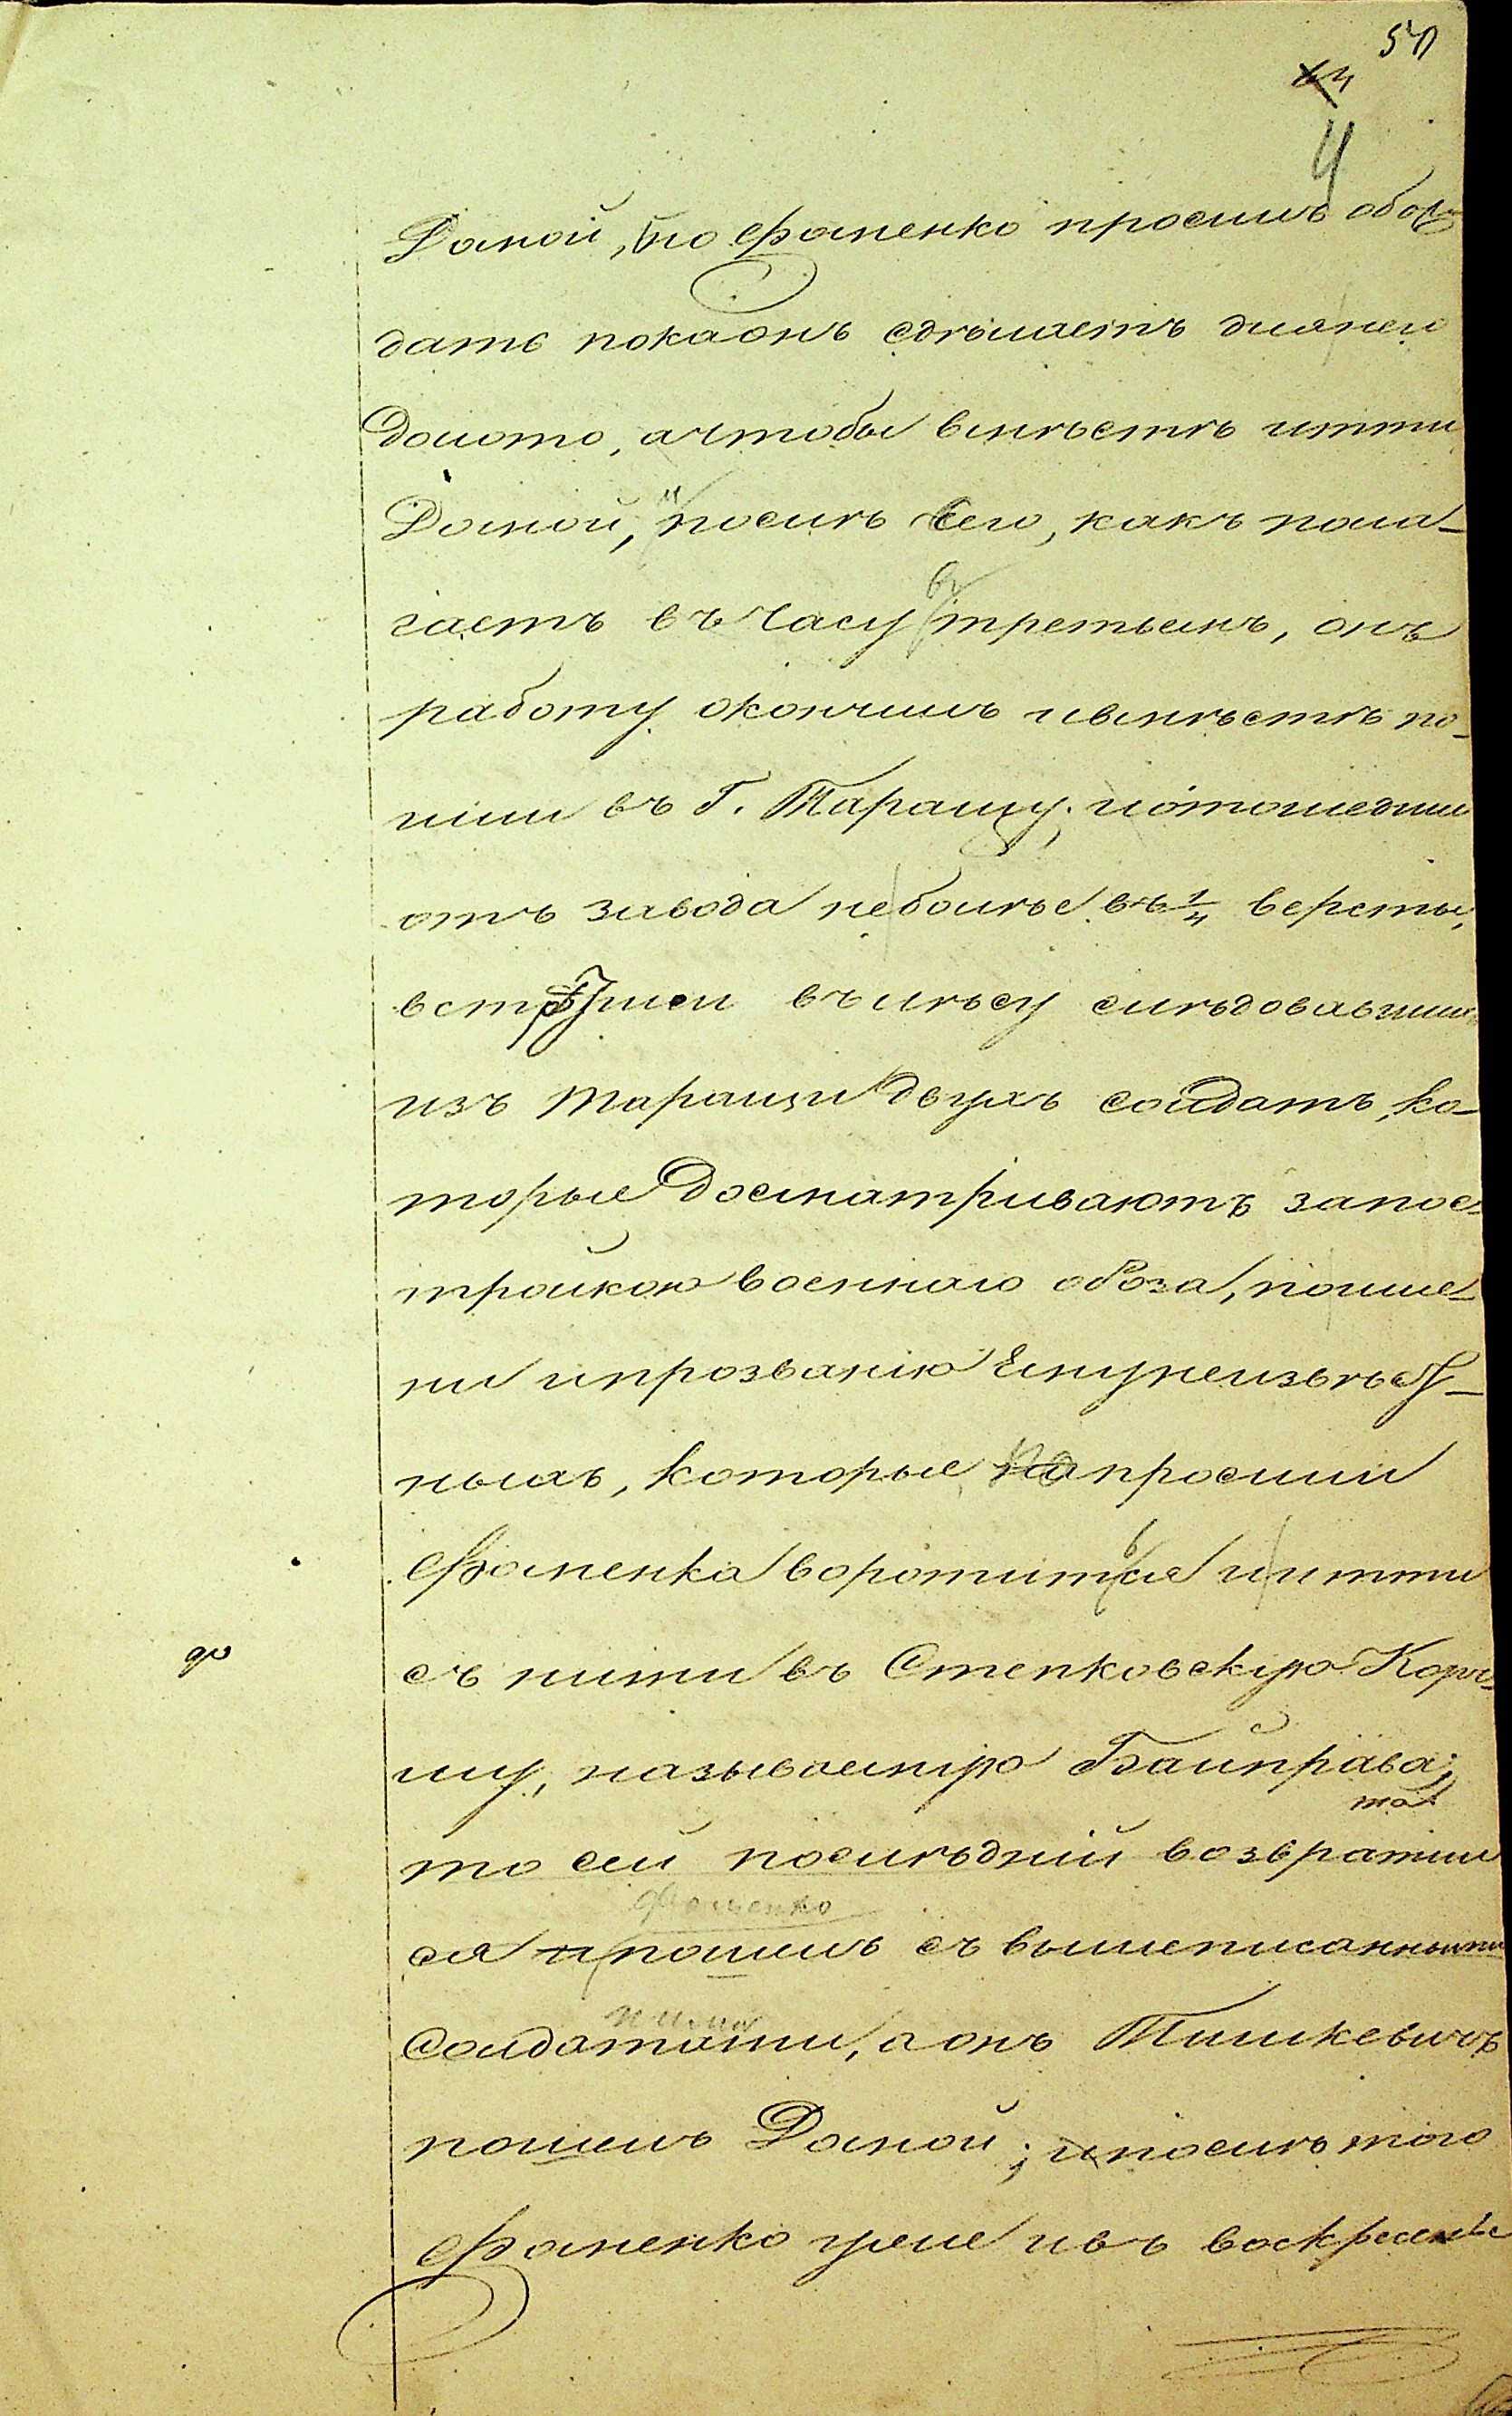 50
64
4
Домой, но Фоменко просилъ обож
дать пока онъ сдѣлаетъ для него
долото, а чтобы вмѣстѣ итти
Домой, и послѣ сего, какъ пола-
гаетъ въ часу въ третьемъ, онъ
работу окончилъ и вмѣстѣ по-
шли въ Г. Таращу; и отошедши
отъ завода не болѣе въ 1/4 версты,
встрѣтили въ лѣсу слѣдовавшихъ
изъ Таращи двухъ солдатъ, ко-
торые досматриваютъ за пос-
тройкою военнаго обоза, по име-
ни и прозванію Ему неизвѣст-
ныхъ, которые попросили
Фоменка воротиться и итти
съ ними въ Степковскую Корч-
му, называемую Байправа;
то сей послѣдній возвратил
ся и пошелъ съ вышеписанными
Фоменко
солдатами, а онъ Тишкевичъ
ними
пошелъ Домой; и послѣ того
Фоменко уже и въ воскресенье